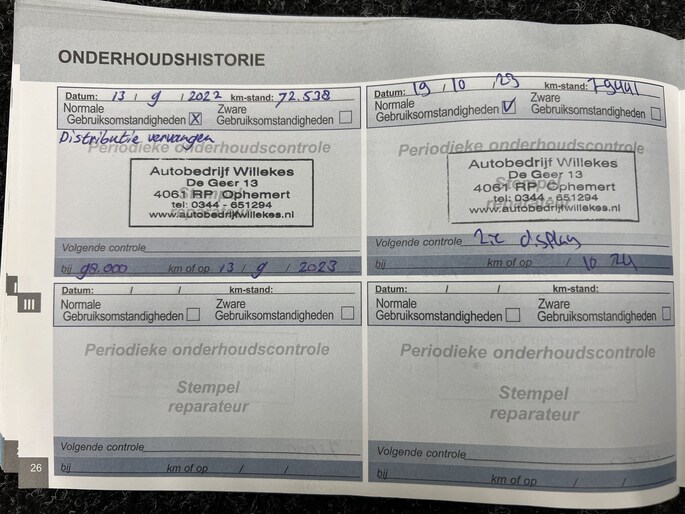 ONDERHOUDSHISTORIE
Datum: 13 / 9 / 2022 km-stand: 72.538
Normale Gebruiksomstandigheden X Zware Gebruiksomstandigheden
Distributie vervangen
Periodieke onderhoudscontrole
Stempel
Autobedrijf Willekes
De Geer 13
4061 RP Ophemert
tel: 0344 - 651294
www.autobedrijfwillekes.nl
Volgende controle
bij 98.000 km of op 13 / 9 / 2023
Datum: 19 / 10 / 23 km-stand: 79441
Normale Gebruiksomstandigheden V Zware Gebruiksomstandigheden
Periodieke onderhoudscontrole
Stempel
Autobedrijf Willekes
De Geer 13
4061 RP Ophemert
tel: 0344 - 651294
www.autobedrijfwillekes.nl
Volgende controle zie display
bij km of op / 10 24
Datum: / / km-stand:
Normale Gebruiksomstandigheden Zware Gebruiksomstandigheden
Periodieke onderhoudscontrole
Stempel
reparateur
Volgende controle
bij km of op / /
Datum: / / km-stand:
Normale Gebruiksomstandigheden Zware Gebruiksomstandigheden
Periodieke onderhoudscontrole
Stempel
reparateur
Volgende controle
bij km of op / /
III
26